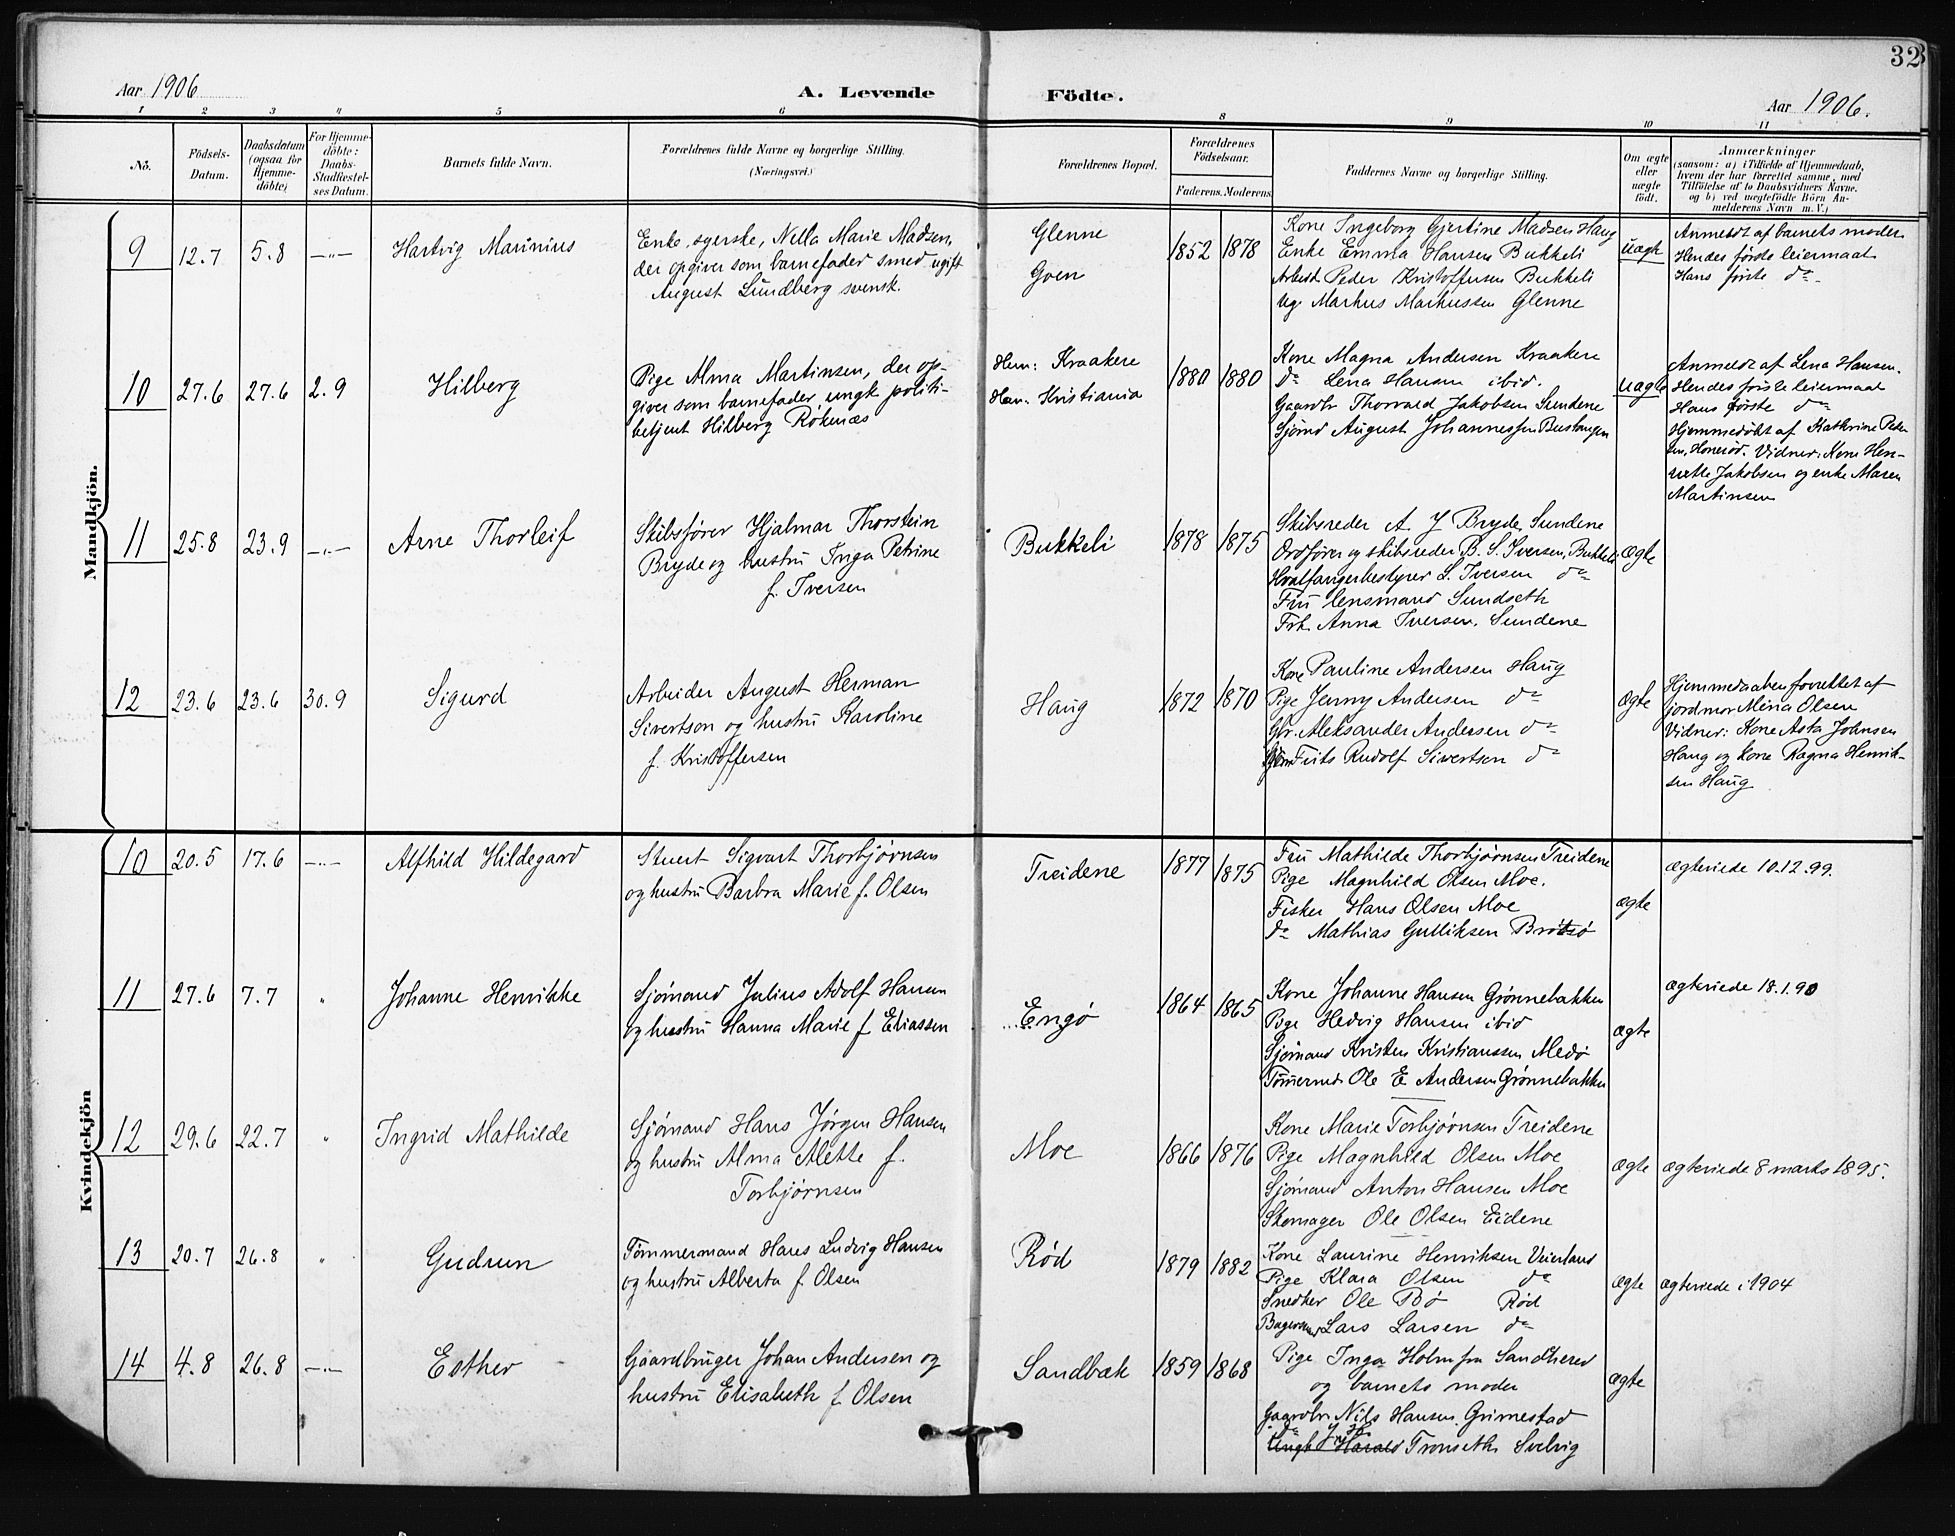 32
Aar 1906
A. Levende
Födte.
Aar 1906.
1 2 3 4 5 6
8 9 10 11
No.
Födsels-Datum.
Daabsdatum (ogsaa for Hjemme-döbte)
For Hjemme-döbte: Daabs-Stadfæstel-ses Datum.
Barnets fulde Navn.
Forældrenes fulde Navne og borgerlige Stilling.
(Næringsvei.)
Forældrenes Bopæl.
Forældrenes Födselsaar.
Faderens. Moderens.
Faddernes Navne og borgerlige Stilling.
Om ægte eller uægte födt.
Anmærkninger
(saasom: a) i Tilfælde af Hjemmedaab,
hvem der har forrettet samme, med
Tilföielse af to Daabsvidners Navne.
og b) ved uægtefödte Börn An-
melderens Navn m. V.)
Mandkjön.
9 12.7 5.8 —"— Hartvig Marinius
Enke, syerske, Nella Marie Madsen,
der opgiver som barnefader smed ugift
August Lundberg svensk.
Glenne
Goen
1852 1878
Kone Ingeborg Gjertine Madsen Haug
Enke Emma Hansen Bukkeli
Arbeid. Peder Kristoffersen Bukkeli
Ug. Markus Markussen Glenne
uægte
Anmeldt af barnets moder
Hendes første leiermaal
Hans første do
10 27.6 27.6 2.9 Hilberg
Pige Alma Martinsen, der op-
giver som barnefader ungk. politi-
betjent Hilberg Röknæs
Hun: Kraakere
Han: Kristiania
1880 1880
Kone Magna Andersen Kraakere
do Lena Hansen ibid.
Gaardbr Thorvald Jakobsen Sundene
Sjømd August Johannessen Bustangen
uægte
Anmeldt af Lena Hansen.
Hendes første leiermaal
Hans første do
Hjemmedøbt af Kathrine Peder
sen, Honerød. Vidner: Kone Hen-
riette Jakobsen og enke Maren
Martinsen
11 25.8 23.9 —"— Arne Thorleif
Skibsfører Hjalmar Thorstein
Bryde og hustru Inga Petrine
f. Iversen
Bukkeli
1878 1875
Skibsreder A. J Bryde, Sundene
Ordfører og skibsreder B. S. Iversen, Bukkeli
Hvalfangerbestyrer L. Iversen do
Fru lensmand Sundseth
Frk. Anna Iversen, Sundene
ægte
12 23.6 23.6 30.9 Sigurd
Arbeider August Herman
Sivertson og hustru Karoline
f. Kristoffersen
Haug
1872 1870
Kone Pauline Andersen Haug
Pige Jenny Andersen do
Gbr. Aleksander Andersen do
Sjøm Frits Rudolf Sivertsen do
ægte
Hjemmedaaben forrettet af
jordmor Mina Olsen
Vidner: Kone Asta Johnsen
Haug og kone Ragna Henrik-
sen Haug
Kvindekjön
10 20.5 17.6 —"— Alfhild Hildegard
Stuert Sigvart Thorbjørnsen
og hustru Barbra Marie f. Olsen
Treidene
1877 1875
Fru Mathilde Thorbjørnsen Treidene
Pige Magnhild Olsen Moe.
Fisker Hans Olsen Moe
do Mathias Gulliksen Brøtsø
ægte
Ægteviede 10.12.99.
11 27.6 7.7 " Johanne Henrikke
Sjømand Julius Adolf Hansen
og hustru Hanna Marie f Eliassen
Engø
1864 1865
Kone Johanne Hansen Grønnebakken
Pige Hedvig Hansen ibid
Sjømand Kristen Kristianssen Medø
Tømmermd. Ole E. Andersen Grønnebakken
ægte
Ægteviede 18.1.90
12 29.6 22.7 " Ingrid Mathilde
Sjømand Hans Jørgen Hansen
og hustru Alma Alette f.
Torbjørnsen
Moe
1866 1876
Kone Marie Torbjørnsen Treidene
Pige Magnhild Olsen Moe
Sjømand Anton Hansen Moe
Skomager Ole Olsen Eidene
ægte
Ægteviede 8 marts 1895.
13 20.7 26.8 " Gudrun
Tømmermand Hans Ludvig Hansen
og hustru Alberta f. Olsen
Rød
1879 1882
Kone Laurine Henriksen Veierland
Pige Klara Olsen do
Snedker Ole Bø Rød
Lars Larsen do
ægte
Ægteviede i 1904
14 4.8 26.8 —"— Esther
Gaardbruger Johan Andersen og
hustru Elisabeth f. Olsen
Sandbæk
1859 1868
Pige Inga Holm fra Sandherred
og barnets moder
Gaardbr Nils Hansen, Grimestad
Ungk. Harald Tronseth Svelvig
ægte